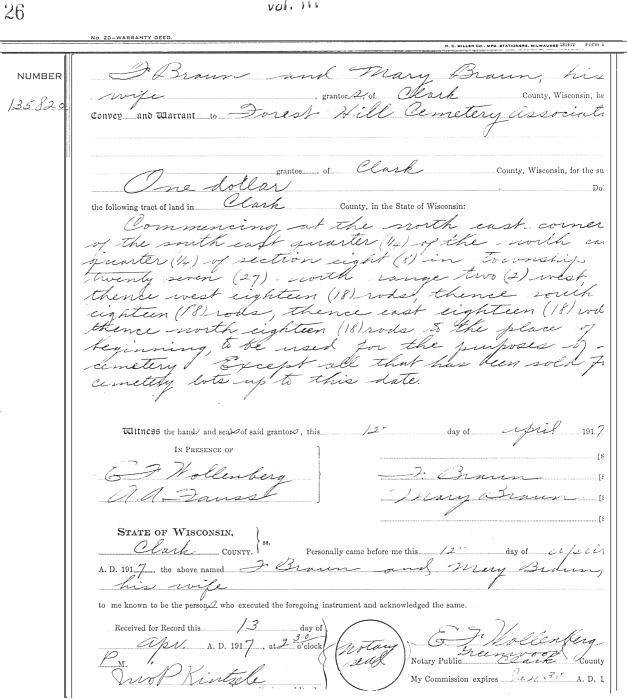 26
Vol. III
No. 20—WARRANTY DEED.
H. C. MILLER CO.—MFG. STATIONERS, MILWAUKEE Form 1
NUMBER
135820
F Braun and Mary Braun, his
wife, grantors of Clark County, Wisconsin, he
Convey and Warrant to Forest Hill Cemetery Associati
grantee of Clark County, Wisconsin, for the su
One dollar Do
the following tract of land in Clark County, in the State of Wisconsin:
Commencing at the north east corner
of the south east quarter (¼) of the north ea
quarter (¼) of section eight (8) in Township
twenty seven (27) north range two (2) west,
thence west eighteen (18) rods, thence south
eighteen (18) rods, thence east eighteen (18) rod
thence north eighteen (18) rods to the place of
beginning, to be used for the purposes of
cemetery Except all that has been sold F
cemetery lots up to this date.
Witness the hands and seals of said grantors, this 12 day of April 1917
IN PRESENCE OF
E F Wollenberg
F. Braun
A. A. Fauss
Mary Braun
STATE OF WISCONSIN,
Clark COUNTY. ss. Personally came before me this 12 day of April
A. D. 1917, the above named F Braun and Mary Braun,
his wife
to me known to be the persons who executed the foregoing instrument and acknowledged the same.
Received for Record this 13 day of
Apr. A. D. 1917, at 2 30 o'clock
P M.
Jno P Kintzele
Notary seal
E F Wollenberg
Greenwood
Notary Public Clark County
My Commission expires A. D. 1